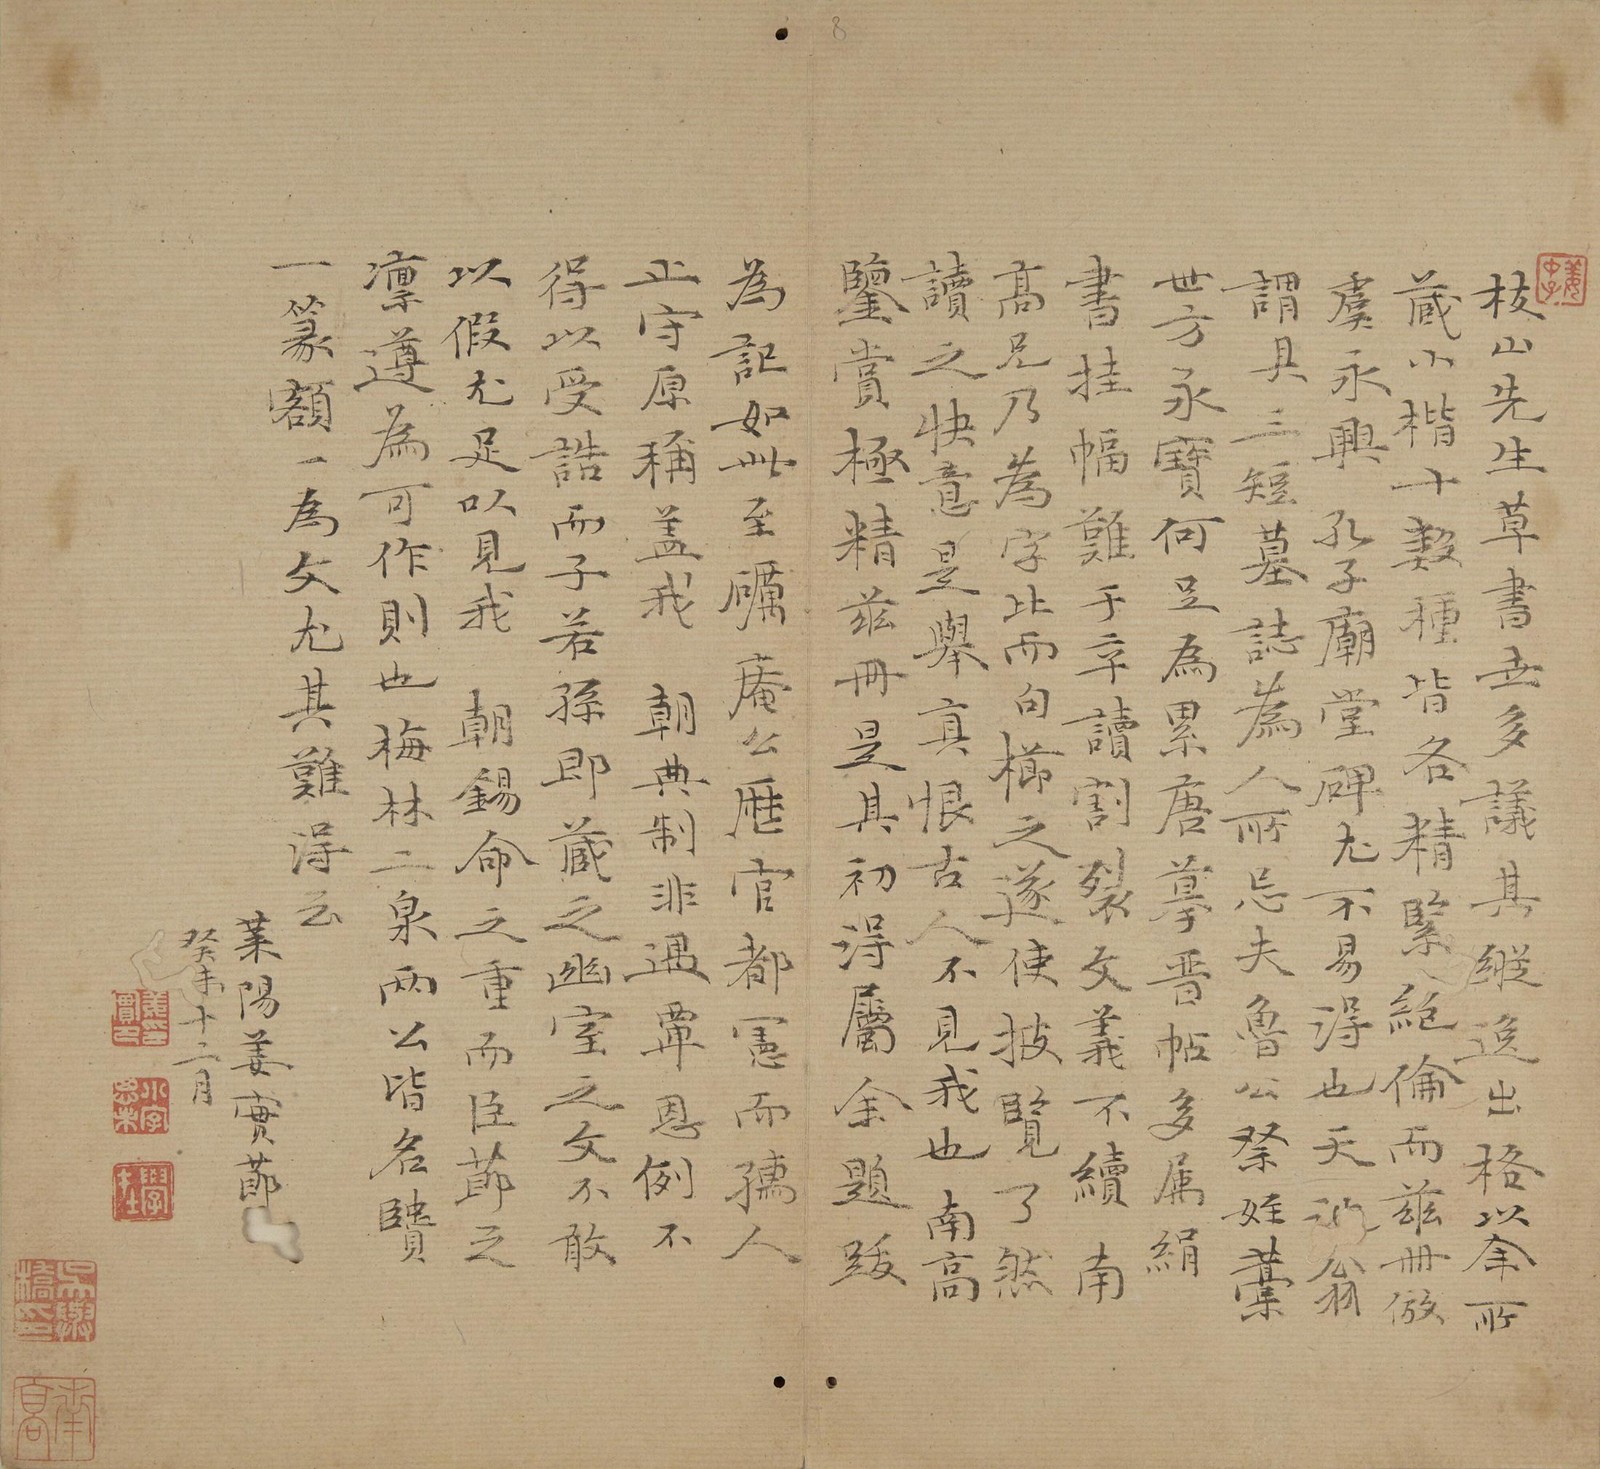 枝山先生草書世多議其縱逸出格以余所
藏小楷十數種皆各精緊絕倫而茲冊倣
虞永興孔子廟堂碑尤不易得也天 翁
謂具三短墓誌為人所忌夫魯公祭姪藁
世方永寶何足為累唐摹晉帖多屬絹
書挂幅難于卒讀割裂文義不續南
高兄乃為字比而句櫛之遂使披覽了然
讀之快意是舉真恨古人不見我也南高
鑒賞極精茲冊是其初得屬余題跋
為記如此至礪菴公歷官都憲而孺人
止守原稱蓋我 朝典制非遇覃恩例不
得以受誥而子若孫即藏之幽室之文不敢
以假尤足以見我 朝錫命之重而臣節之
凜遵為可作則也梅林二泉兩公皆名
一篆額一為文尤其難得云
萊陽姜實節
癸未十二月
姜實節印
小字思未
學在
吳興橋
南高